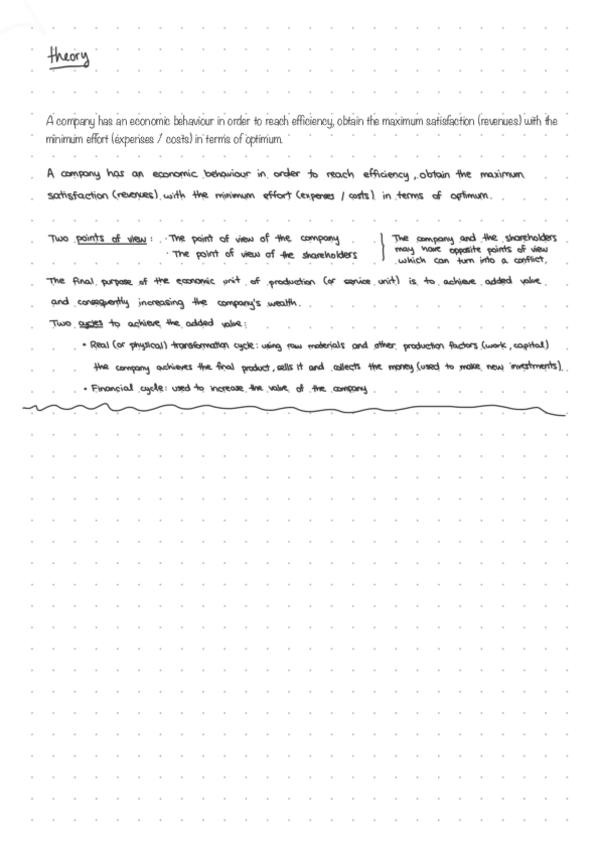 theory
A company has an economic behaviour in order to reach efficiency, obtain the maximum satisfaction (revenues) with the
minimum effort (expenses / costs) in terms of optimum.
A company has an economic behaviour in order to reach efficiency, obtain the maximum
satisfaction (revenues) with the minimum effort (expenses / costs) in terms of optimum.
Two points of view: · The point of view of the company
· The point of view of the shareholders
The company and the shareholders
may have opposite points of view
which can turn into a conflict.
The final purpose of the economic unit of production (or service unit) is to achieve added value
and consequently increasing the company's wealth.
Two cycles to achieve the added value:
• Real (or physical) transformation cycle: using raw materials and other production factors (work, capital)
the company achieves the final product, sells it and collects the money (used to make new investments).
• Financial cycle: used to increase the value of the company